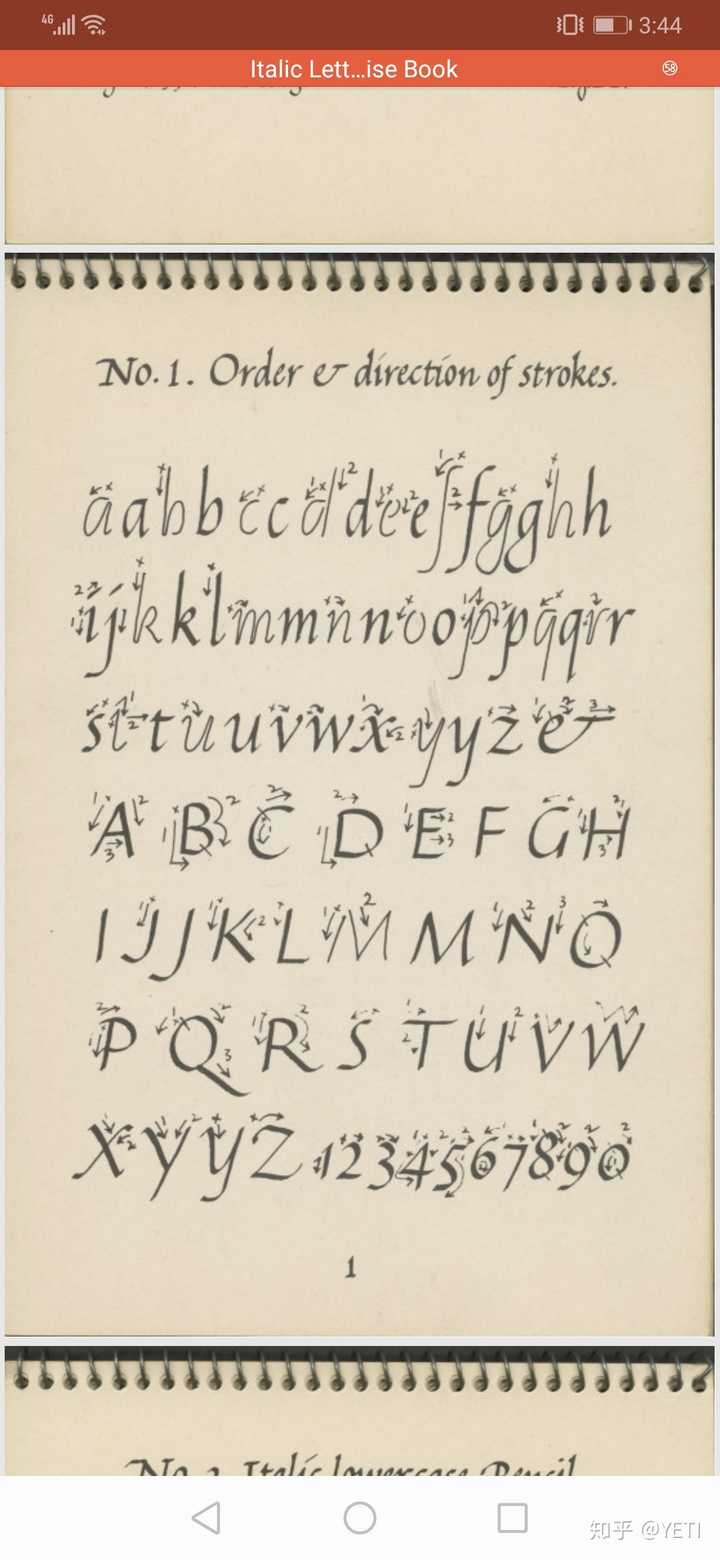 4G 3:44
Italic Lett...ise Book 58
No. 1. Order & direction of strokes.
a a b b c c d d e e f f g g h h
i j k k l m m n n o o p p q q r r
s t t u u v w x y y z &
A B C D E F G H
I J J K L M M N O
P Q R S T U V W
X Y Y Z 1 2 3 4 5 6 7 8 9 0
1
No. 2. Italic lowercase Pencil
知乎 @YETI